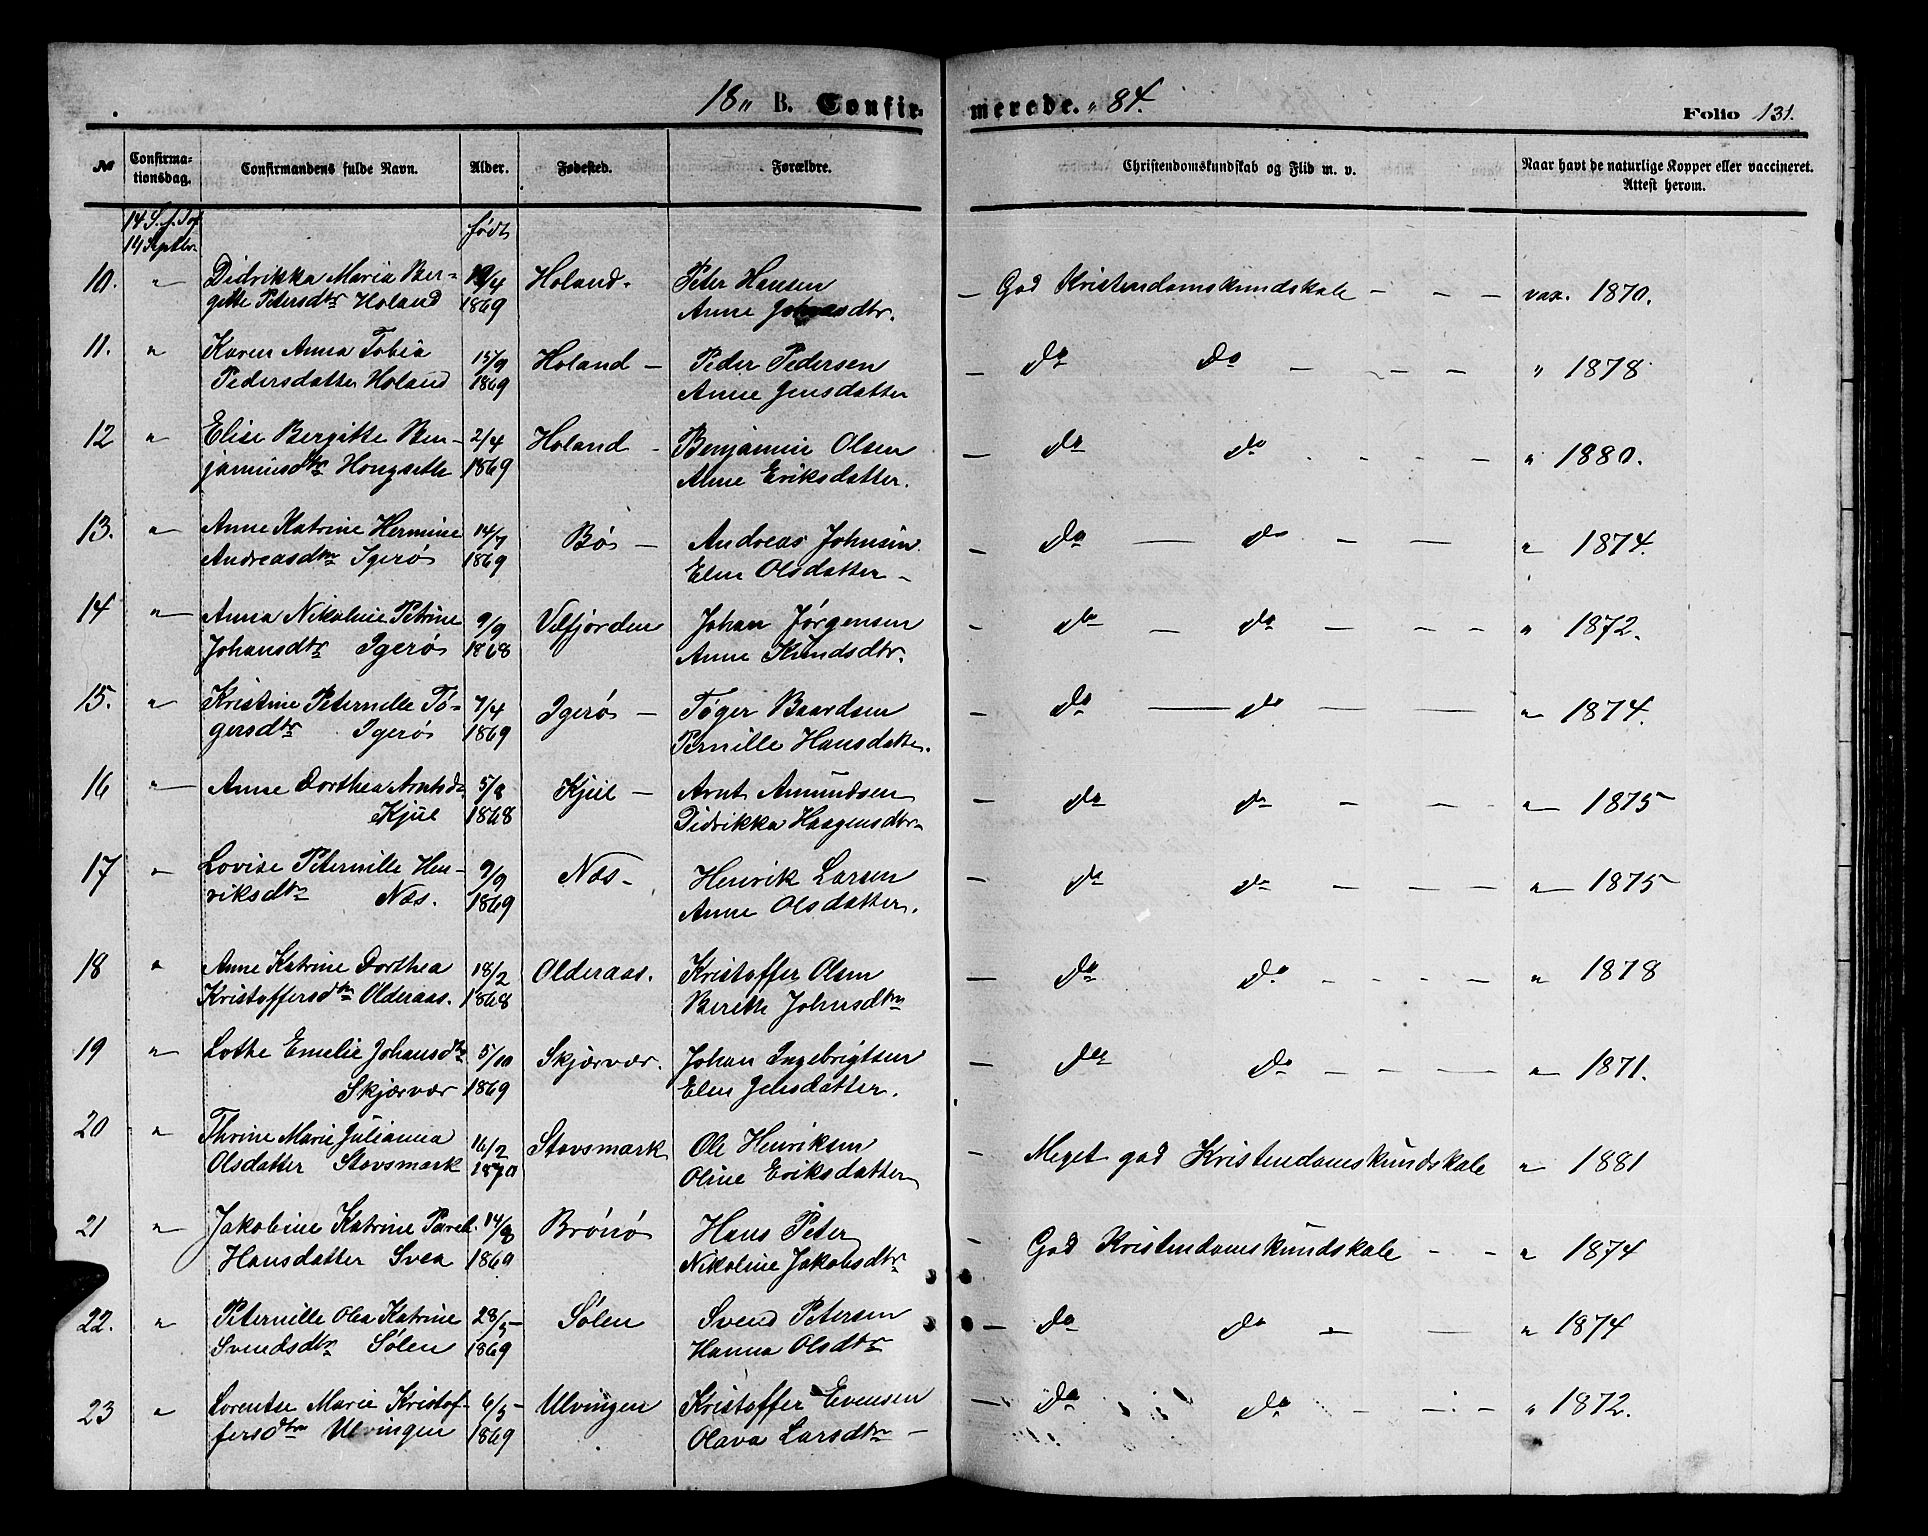 18 " B. Confirmerede. " 84.
Folio 131.
No
Confirmationsdag.
Confirmandens fulde Navn.
Alder.
Fødested.
Forældre.
Christendomskundskab og Flid m. v.
Naar havt de naturlige Kopper eller vaccineret. Attest herom.
14 S. f. Tref.
14 Septbr.
født
10. " Didrikka Maria Ber- 12/4 Holand. Peter Hansen — God Kristendomskundskab — — — vax. 1870.
gitte Petersdtr Holand 1869 Anne Johnsdtr.
11. " Karen Anna Tobia 15/9 Holand — Peder Pedersen — do do — — — — " 1878
Pedersdatter Holand 1869 Anne Jensdatter
12 " Elise Bergitte Ben- 2/4 Holand — Benjamin Olsen — do do . - - — " 1880.
jaminsdtr Hongsette 1869 Anne Eriksdatter.
13. " Anne Katrine Hermine 14/7 Bøs — Andreas Johnsen — do — do — — " 1874.
Andreasdtr Igerø 1869 Elen Olsdatter —
14 " Anna Nikoline Petrine 9/9 Velfjorden Johan Jørgensen — do — do — — — " 1872.
Johansdtr Igerø 1868 Anne Knudsdtr.
15. " Kristine Peternelle Tø- 7/4 Igerø — Tøger Baardsen — do — do — — " 1874.
gersdtr Igerø 1869 Pernille Hansdatter.
16 " Anne Dorthea Arntsd. 5/8 Kjul — Arnt Amundsen — do do — — — " 1875
Kjul 1868 Didrikka Haagensdtr
17 " Lovise Peternille Hen- 9/9 Næs — Henrik Larsen — do do — — — " 1875
riksdtr Næs. 1869 Anne Olsdatter.
18 " Anne Katrine Dorthea 18/2 Olderaas. Kristoffer Olsen — do do — - - — " 1878
Kristoffersdtr Olderaas. 1868 Bereth Johnsdtr
19 " Lothe Emelie Johansdtr 5/10 Skjærvær. Johan Ingebrigtsen — do do — — — — " 1871.
Skjærvær 1869 Elen Jensdatter.
20 " Thrine Marie Julianna 16/2 Stovsmark Ole Henriksen — Meget god Kristendomskundskab " 1881
Olsdatter Stovsmark 1870 Oline Eriksdatter
21 " Jakobine Katrine Parel. 14/8 Brønø Hans Peter — God Kristendomskundskab — — " 1874
Hansdatter Svea 1869 Nikoline Jakobsdtr
22. " Peternille Olea Katrine 28/5 Sølen Svend Petersen — do do — — " 1874
Svendsdtr Sølen 1869 Hanna Olsdtr
23 " Lorentse Marie Kristof- 6/5 Ulvingen Kristoffer Evensen — do do — — — " 1872.
fersdtr Ulvingen 1869 Olava Larsdtr —